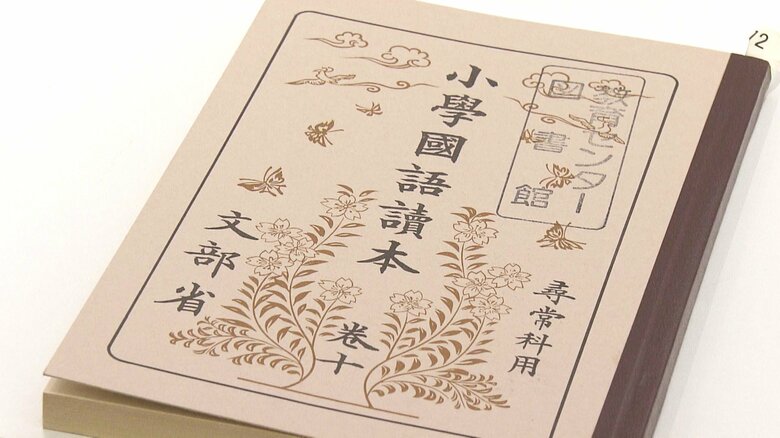 12
教育センター
図書館
尋常科用
小學國語讀本
卷十
文部省